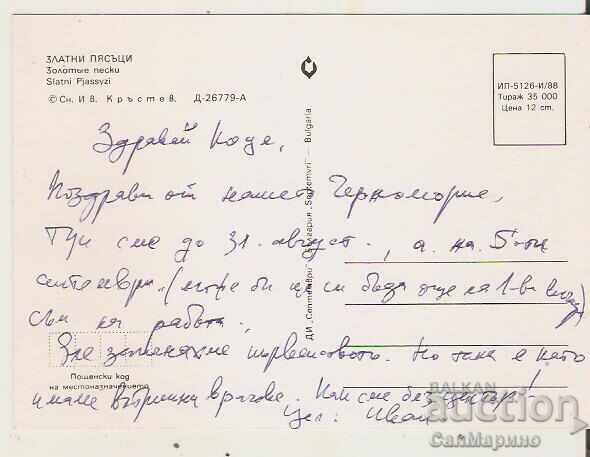 ЗЛАТНИ ПЯСЪЦИ
Золотые пески
Slatni Pjassyzi
© Сн. И в. Кръстев. Д-26779-А
ИП-5126-И/88
Тираж 35 000
Цена 12 ст.
ДИ „Септември" — България „Septemvri" — Bulgaria
Здравей Коце,
Поздрави от нашето Черноморие,
Тук сме до 31. август., а на 5-ти
септември. (може би ще си бъда още на 1-ви
съм на работа.,
Зле започнахме първенството. Но така е като
имаме вътрешни врагове. Как сме без център!
Цел: Иван
Пощенски код
на местоназначението
BALKAN
auction
СалМарино